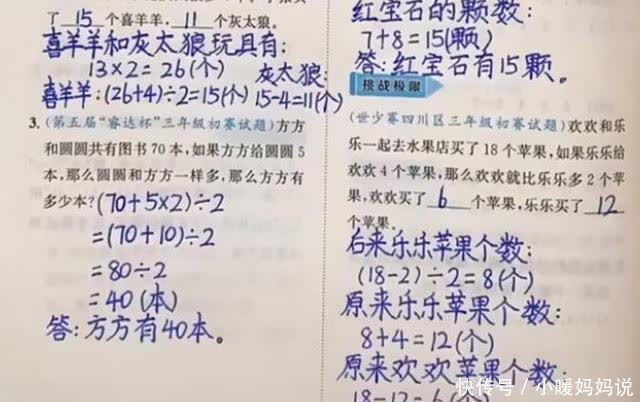 了 15 个喜羊羊, 11 个灰太狼。
喜羊羊和灰太狼玩具有:
13×2=26(个)
灰太狼:
喜羊羊:(26+4)÷2=15(个) 15-4=11(个)
3.(第五届“睿达杯”三年级初赛试题)方方
和圆圆共有图书70本,如果方方给圆圆5
本,那么圆圆和方方一样多,那么方方有
多少本?(70+5×2)÷2
=(70+10)÷2
=80÷2
=40(本)
答:方方有40本。
红宝石的颗数:
7+8=15(颗)
答:红宝石有15颗。
挑战极限
(世少赛四川区三年级初赛试题)欢欢和乐
乐一起去水果店买了18个苹果,如果乐乐给
欢欢4个苹果,那么欢欢就比乐乐多2个苹
果,欢欢买了 6 个苹果,乐乐买了 12
个苹果。
后来乐乐苹果个数:
(18-2)÷2=8(个)
原来乐乐苹果个数:
8+4=12(个)
原来欢欢苹果个数:
18-12=6(个)
快传号/小暖妈妈说